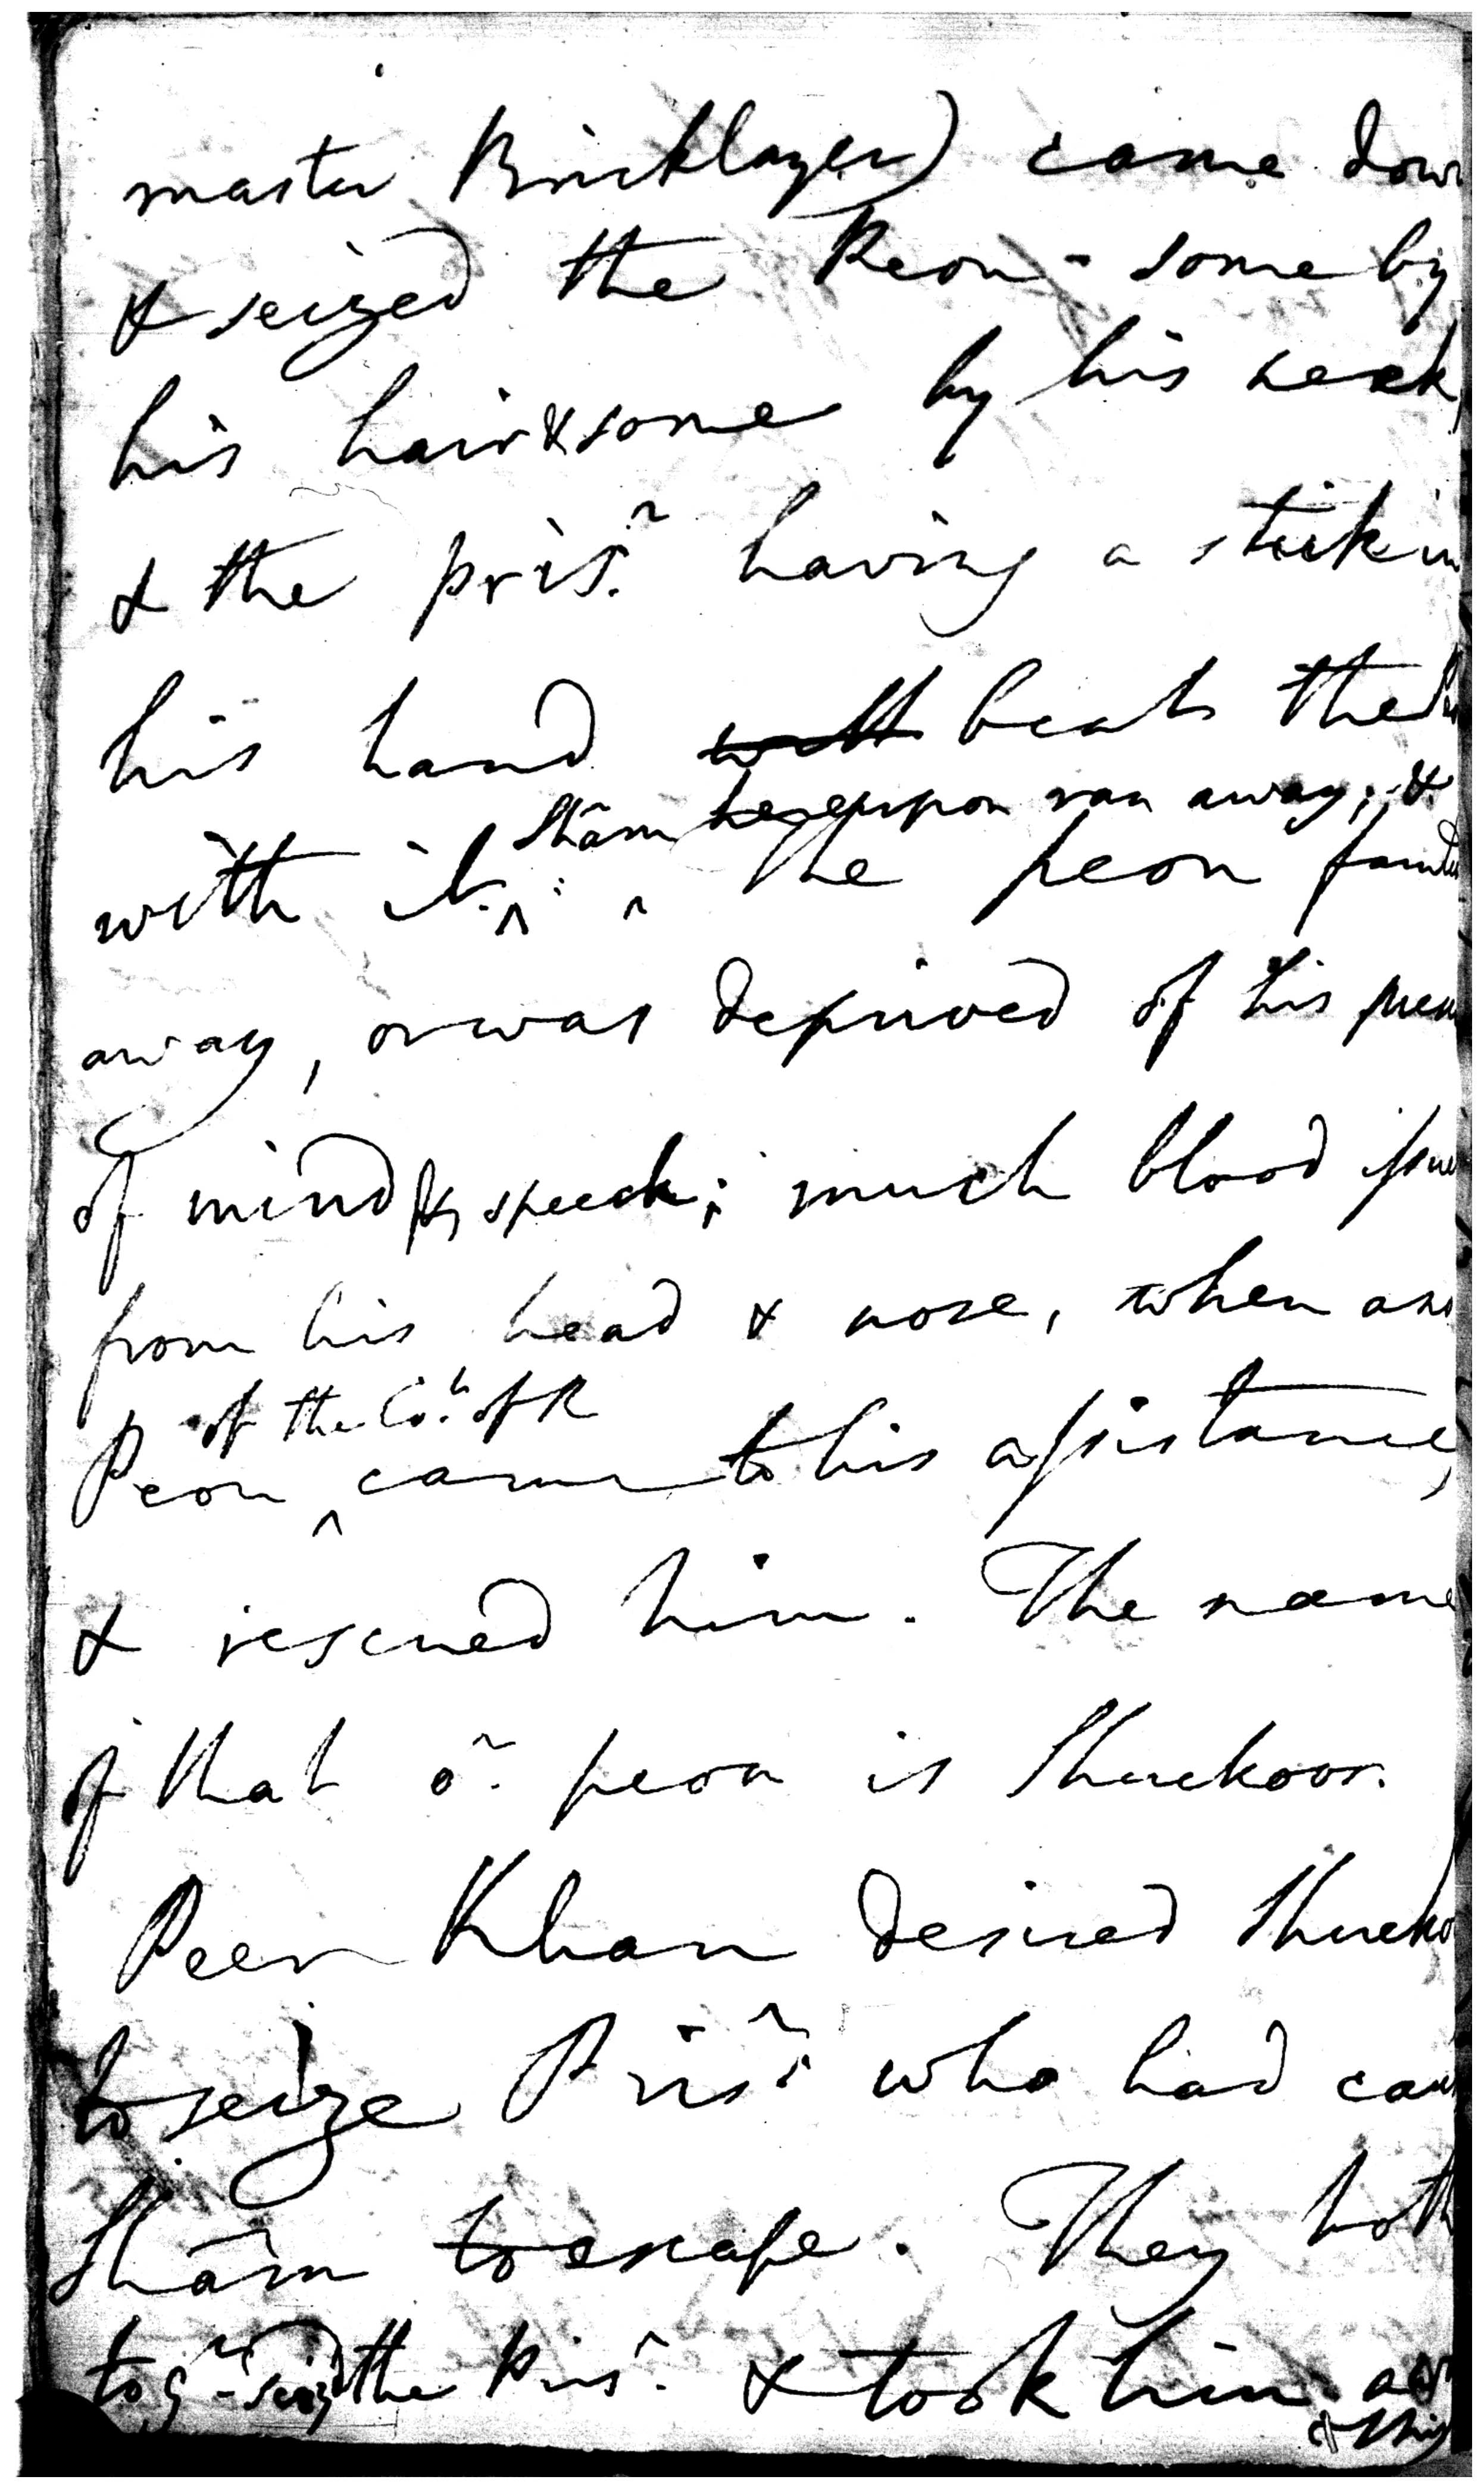 master Bricklayer) came down
& seized the Peon - some by
his hair & some by his neck,
& the pris.r having a stick in
his hand with beats the
Shām hereupon ran away; &
with it. The peon
away, or was deprived of his
of mind & speech; much blood
from his head & nose, when
of the Co.t of R
Peon came to his assistance,
& rescued him. The name
of that o.r peon is Shuckoor.
Peer Khan desired
to seize Pris.r who had
Shām to escape. They both
tog.r seiz'd the Pris.r & took him
& this